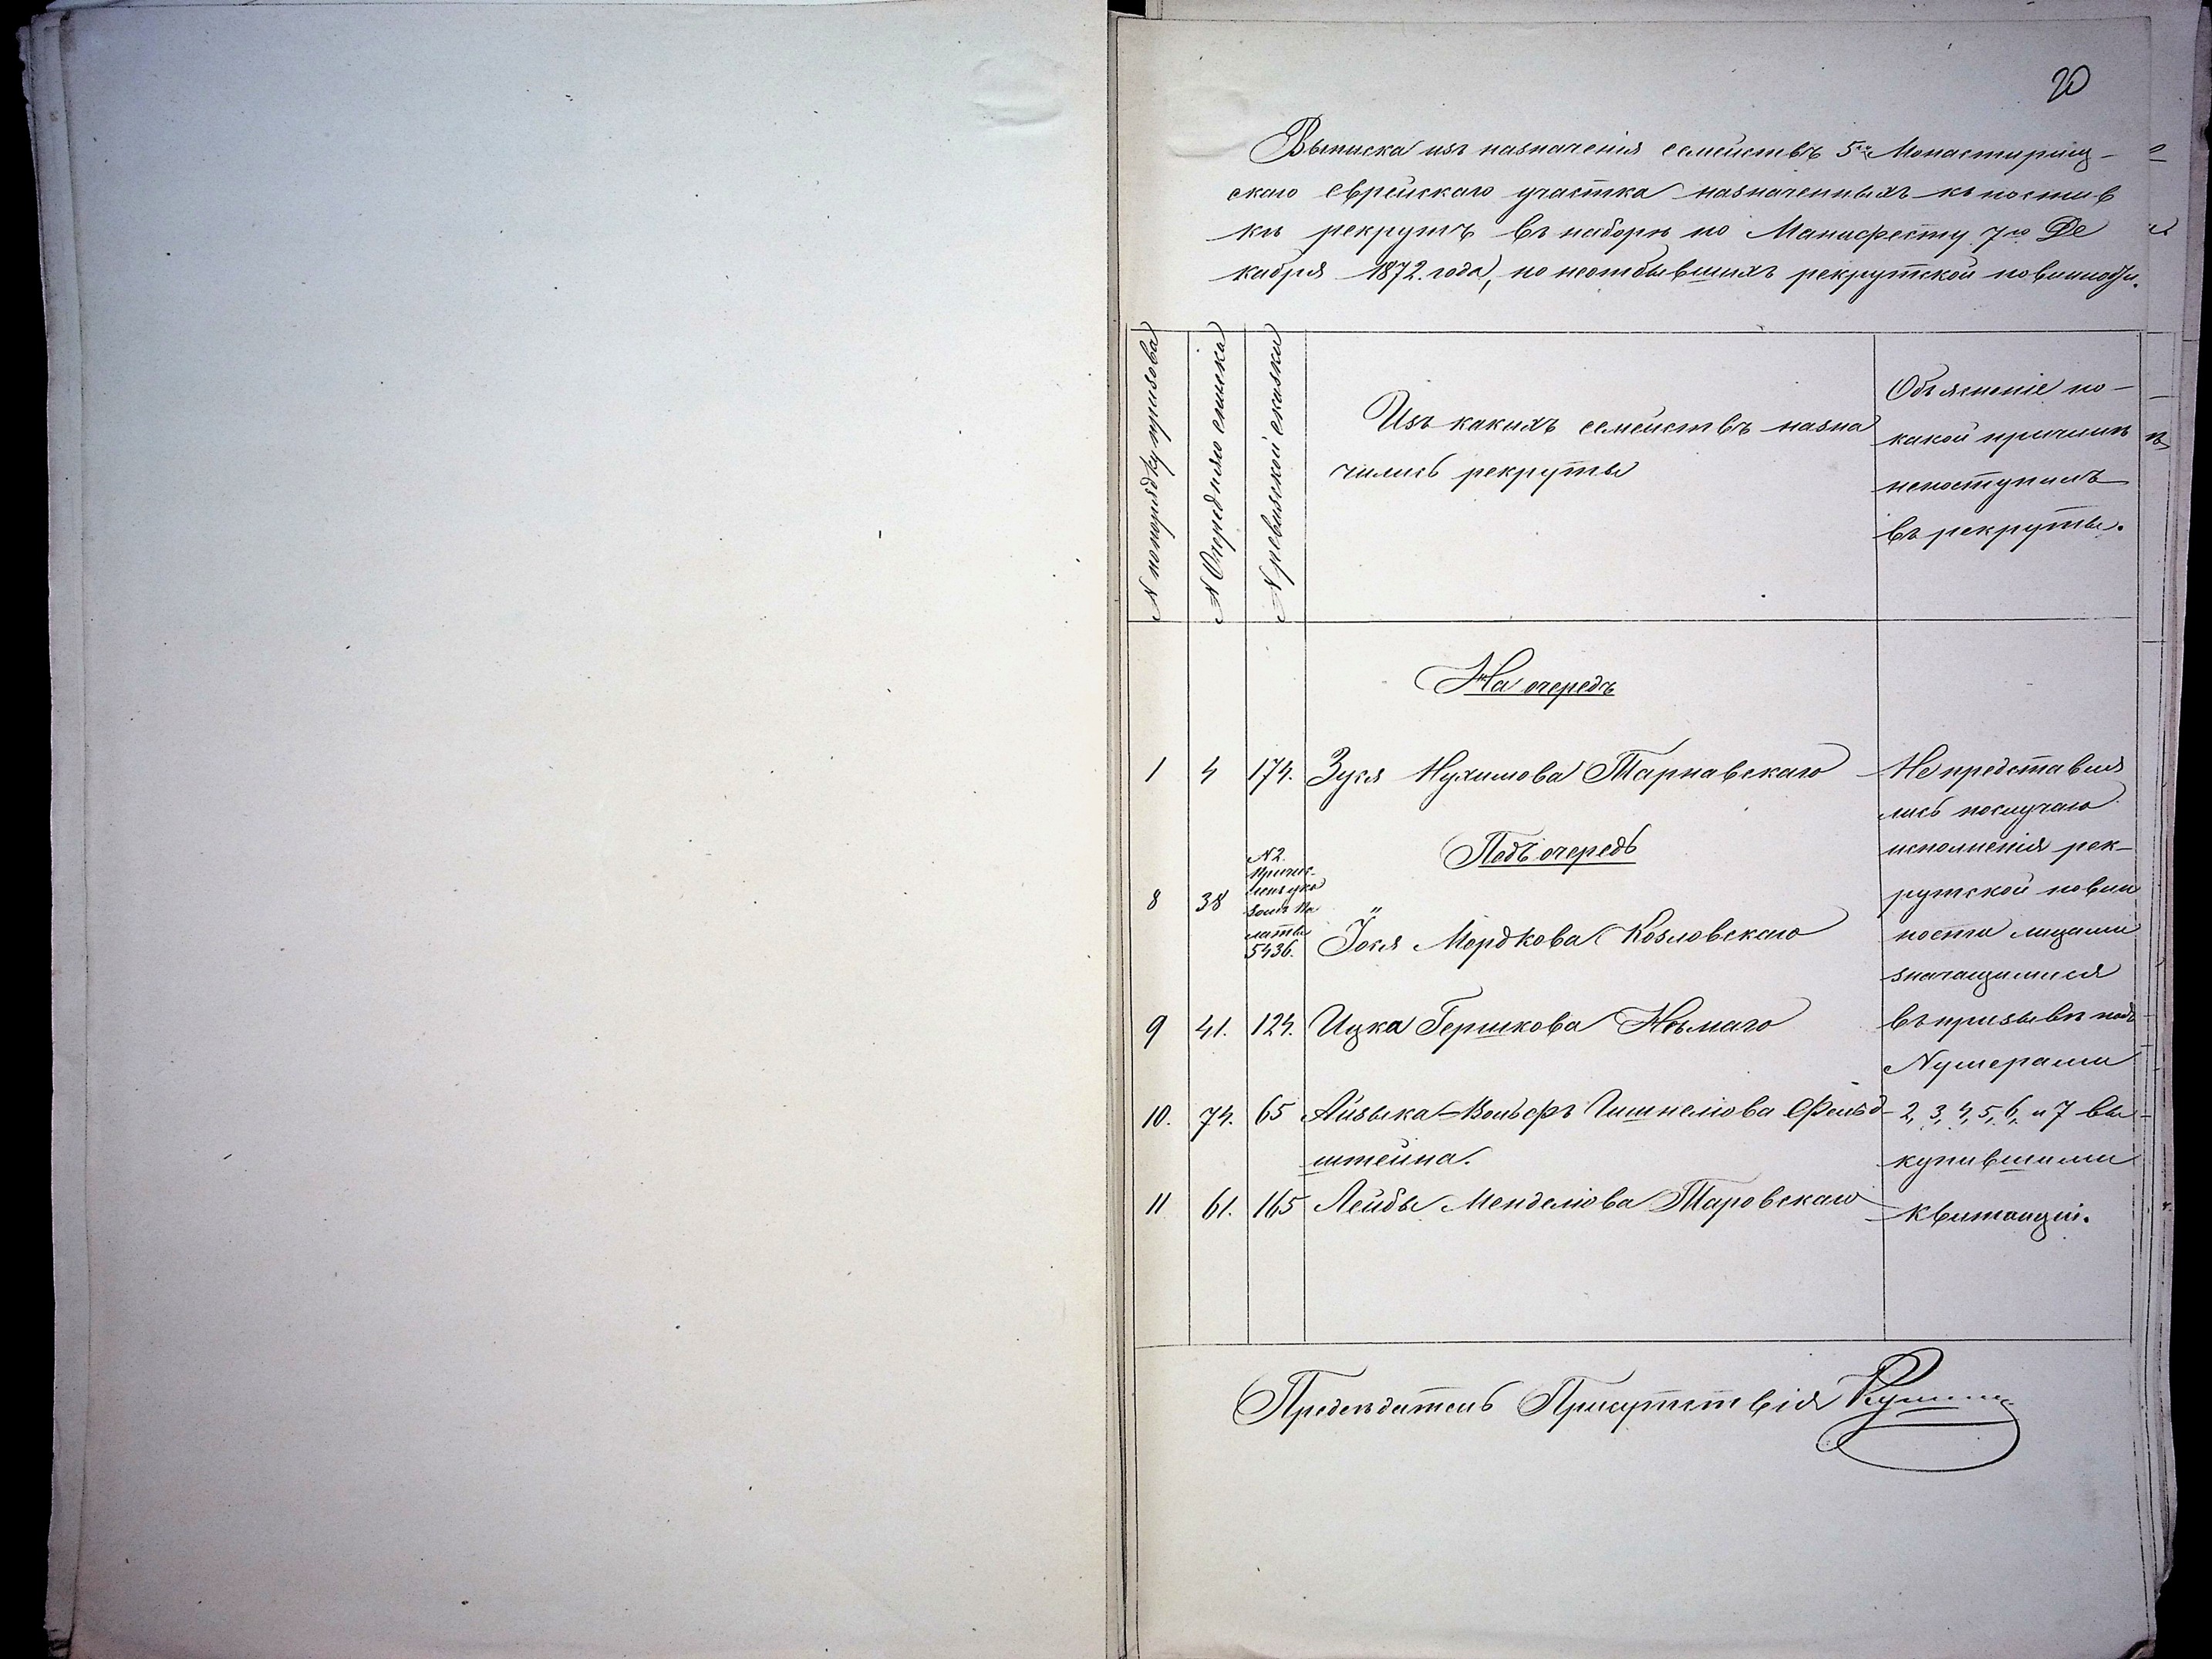 20
Выписка изъ назначенія семействъ 5го Монастирищ-
скаго Еврейскаго участка назначенныхъ къ постав
кѣ рекрутъ въ наборъ по Манифесту 7го Де
кабря 1872. года, но неотбывшихъ рекрутской повинности.
N попорядку призова
N Очереднаго списка
N ревизской сказки
Изъ какихъ семействъ назна
чились рекруты
Объясненіе по-
какой причинѣ
непоступилъ
въ рекруты.
На очередь
1 4 174. Зуся Нухимова Тарнавскаго
Не представля
лись послучаю
исполненія рек-
рутской повин
ности лицами
значащимися
въ призывѣ подъ
Nумерами
2, 3, 4, 5, 6, и 7 вы-
купившими
квитанціи.
Подъ очередь
8 38 N2. Причис-
ленъ ука
зомъ Па
латы
5436. Іося Мордкова Козловскаго
9 41. 124. Ицка Гершкова Нѣмаго
10. 74. 65 Айзыка-Вольфъ Чишнелюва Фельд-
штейна.
11 61. 165 Лейбы Менделюва Таровскаго
Предсѣдатель Присутствія